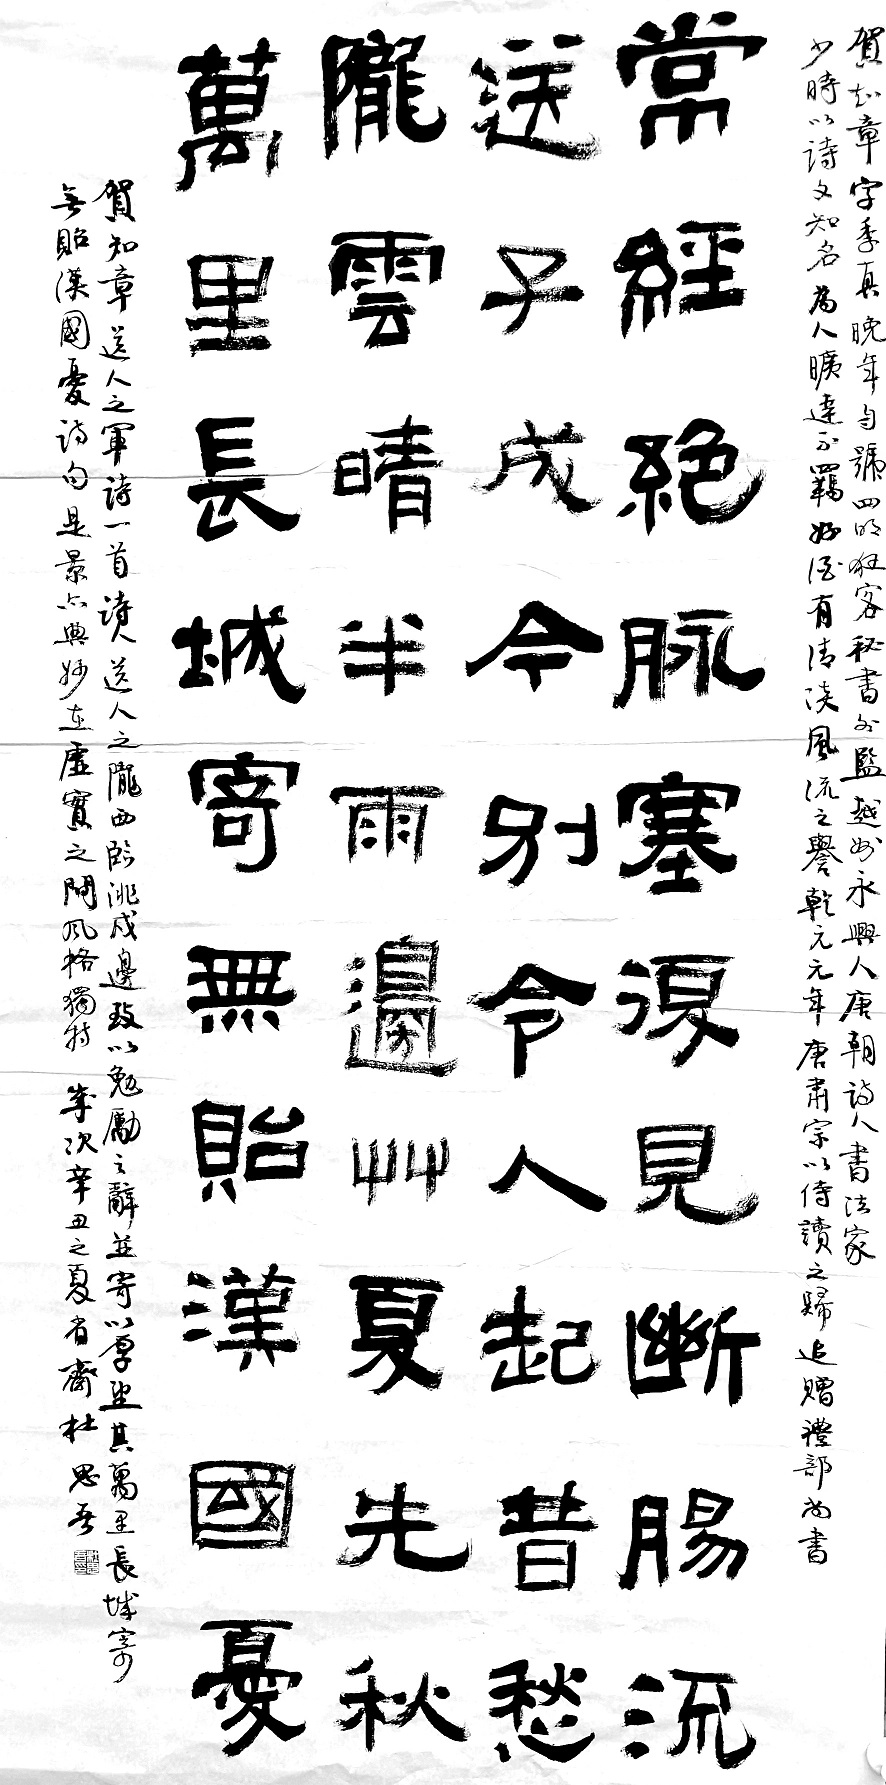 賀知章字季真晚年自號四明狂客秘書外監越州永興人唐朝詩人書法家
少時以詩文知名為人曠達不羈好酒有清談風流之譽乾元元年唐肅宗以侍讀之歸追贈禮部尚書
常經絕脈塞復見斷腸流
送子成今別令人起昔愁
隴雲晴半雨邊艸夏先秋
萬里長城寄無貽漢國憂
賀知章送人之軍詩一首詩人送人之隴西臨洮戍邊致以勉勵之辭並寄以厚望其萬里長城寄
無貽漢國憂詩句是景亦典妙在虛實之間風格獨特 歲次辛丑之夏省齋杜思吾